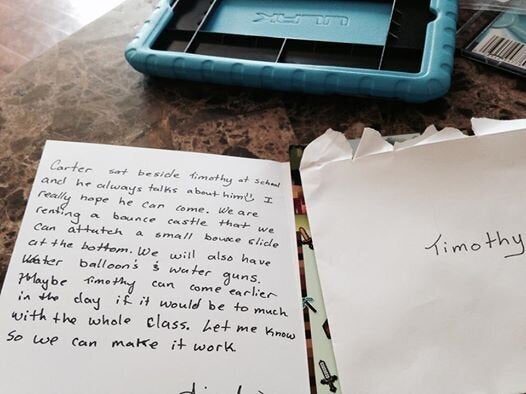 Carter sat beside Timothy at school
and he always talks about him!! I
really hope he can come. We are
renting a bounce castle that we
can attatch a small bounce slide
at the bottom. We will also have
Water balloon's & water guns.
Maybe Timothy can come earlier
in the day if it would be to much
with the whole class. Let me know
so we can make it work.
Timothy